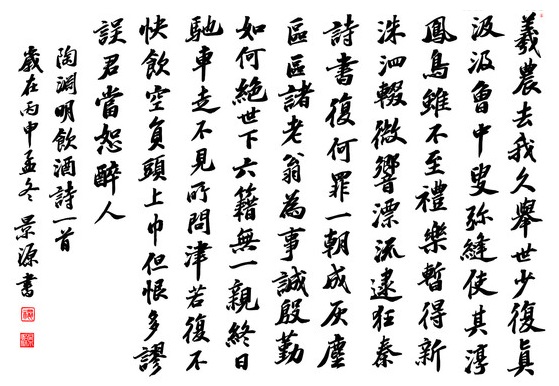 羲農去我久舉世少復眞
汲汲魯中叟弥縫使其淳
鳳鳥雖不至禮樂暫得新
洙泗輟微響漂流逮狂秦
詩書復何罪一朝成灰塵
區區諸老翁為事誠殷勤
如何絕世下六籍無一親終日
馳車走不見所問津若復不
快飲空負頭上巾但恨多謬
誤君當恕醉人
陶淵明飲酒詩一首
歲在丙申孟冬 景源書